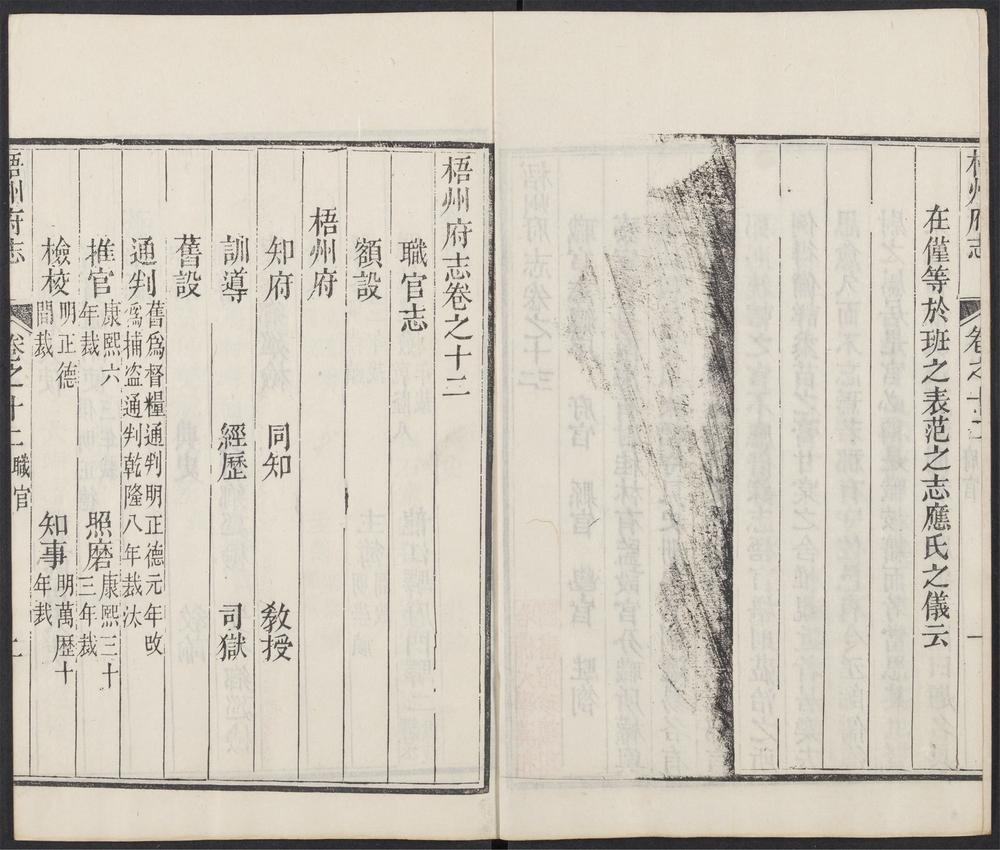 梧州府志
卷之十二
府官
一
在僅等於班之表范之志應氏之儀云
梧州府志卷之十二
職官志
額設
梧州府
知府 同知 教授
訓導 經歷 司獄
舊設
通判 舊爲督糧通判明正德元年改
爲捕盜通判乾隆八年裁汰
推官 康熙六
年裁 照磨 康熙三十
三年裁
檢校 明正德
間裁 知事 明萬歷十
年裁
梧州府志
卷之十二 職官